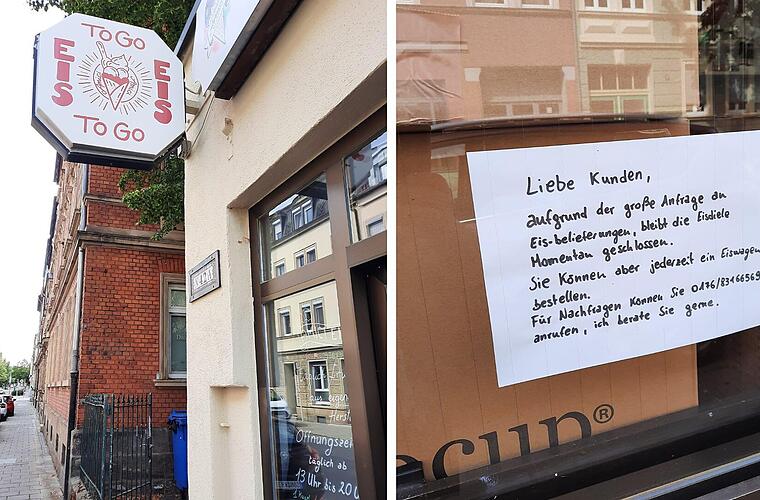 To Go
EIS
EIS
To Go
aus eigen
Herst
Öffnungsze
täglich ab
13 Uhr bis 20 U
Liebe Kunden,
aufgrund der große Anfrage an
Eis-belieferungen, bleibt die Eisdiele
Momentan geschlossen.
Sie Können aber jederzeit ein Eiswagen
Bestellen.
Für Nachfragen Können Sie 0176/83166569
anrufen, ich berate Sie gerne.
ecup®